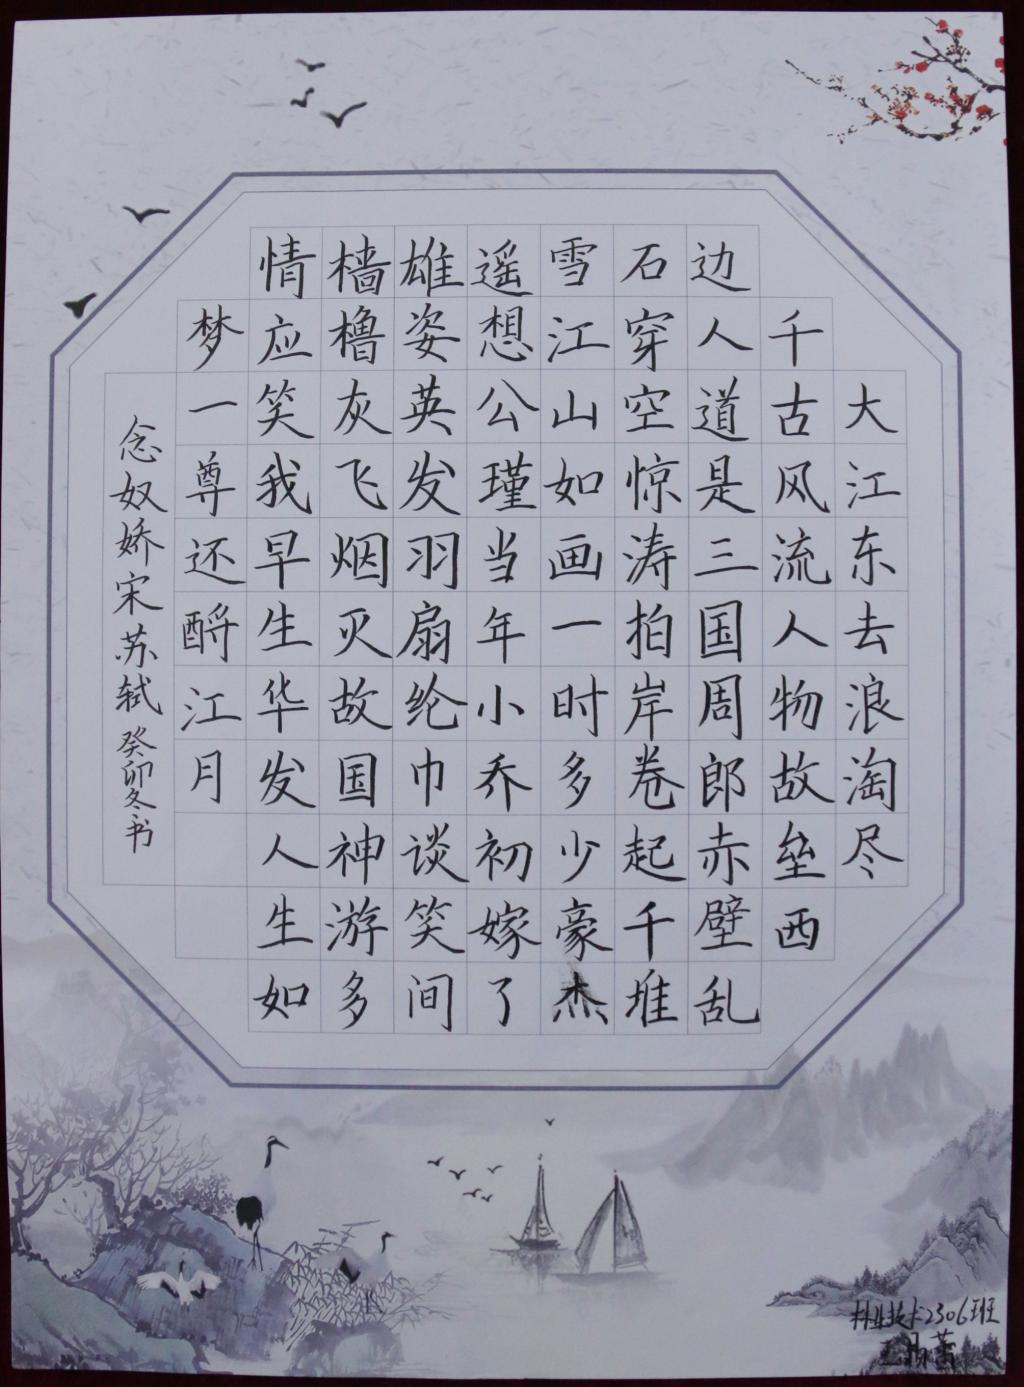 大江东去浪淘尽
千古风流人物故垒西
边人道是三国周郎赤壁乱
石穿空惊涛拍岸卷起千堆
雪江山如画一时多少豪杰
遥想公瑾当年小乔初嫁了
雄姿英发羽扇纶巾谈笑间
樯橹灰飞烟灭故国神游多
情应笑我早生华发人生如
梦一尊还酹江月
念奴娇宋苏轼癸卯冬书
林业技术2306班